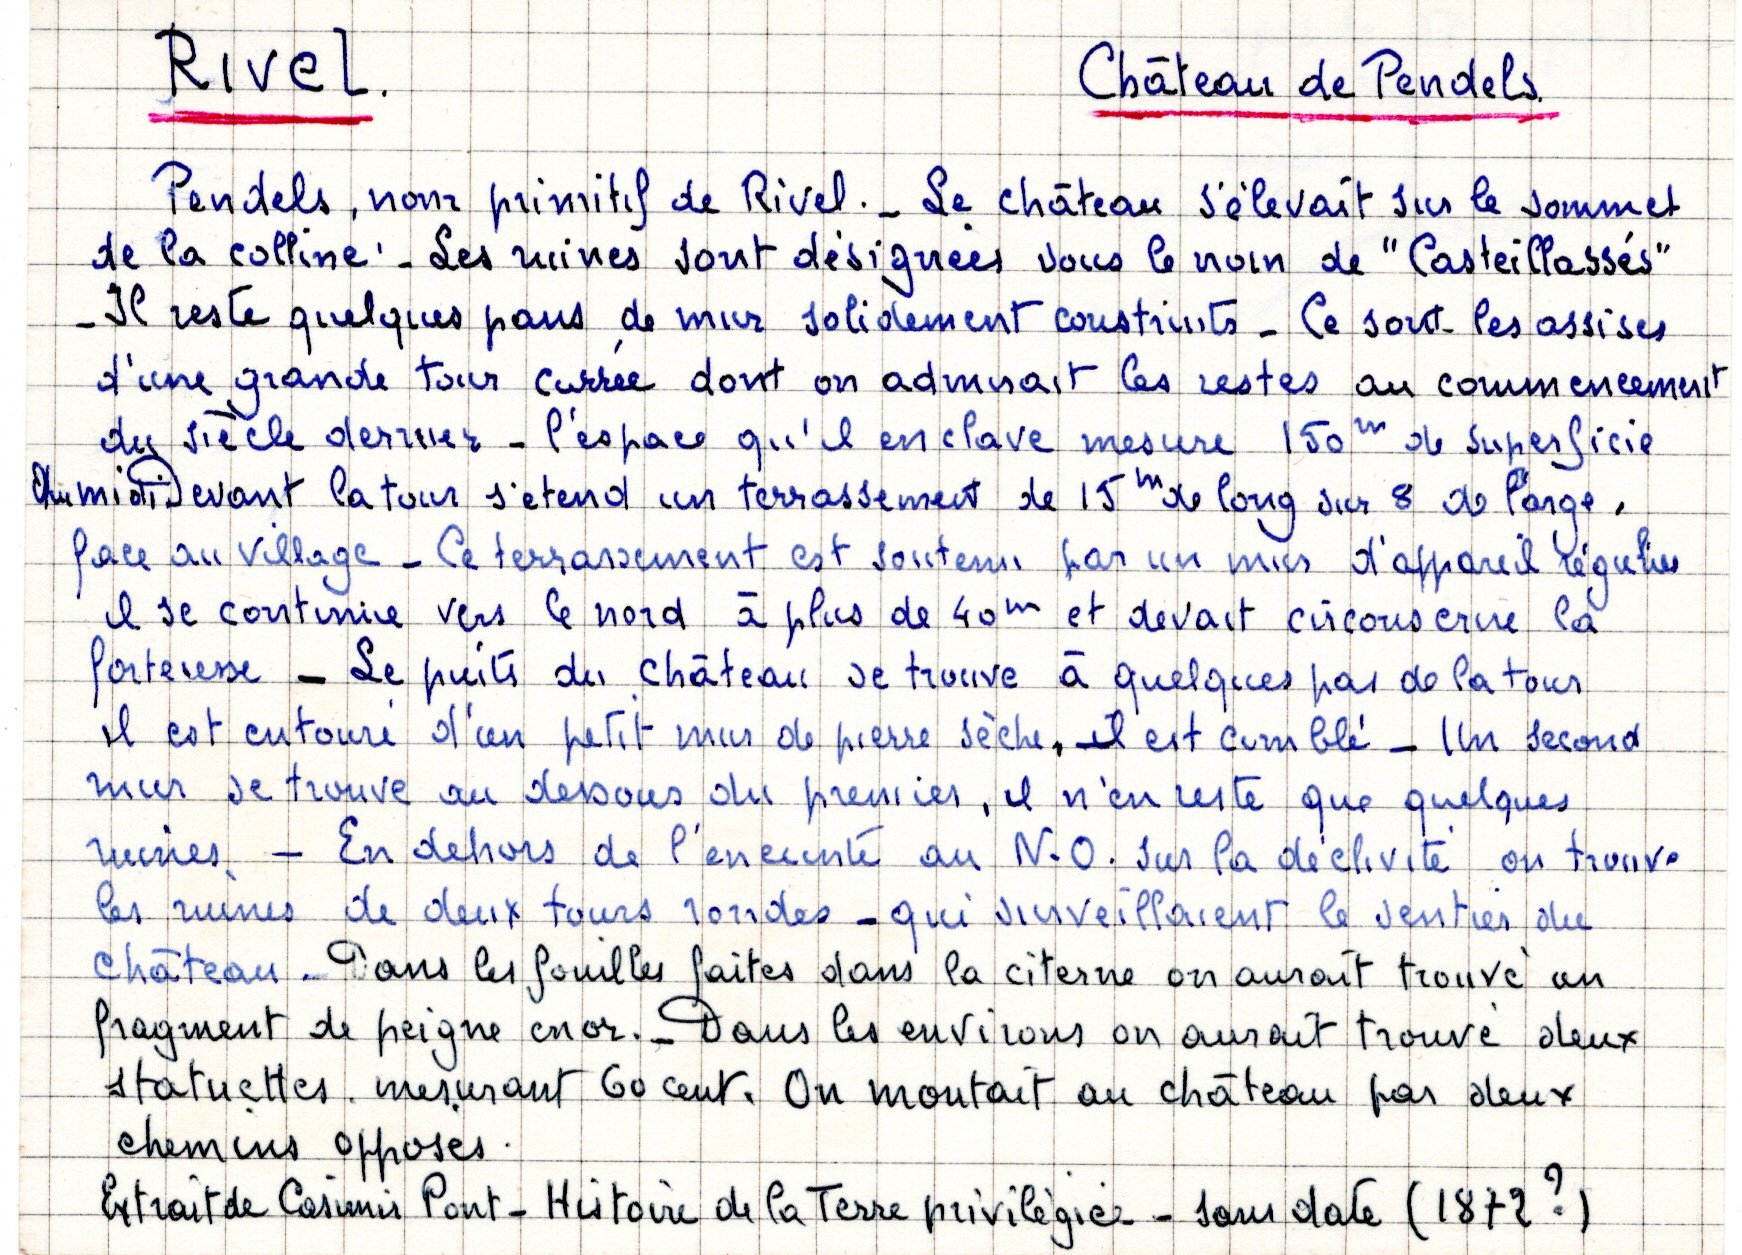 Rivel.
Château de Pendels.
Pendels, nom primitif de Rivel. - Le château s'élevait sur le sommet
de la colline. - Les ruines sont désignées sous le nom de "Casteillassés"
- Il reste quelques pans de mur solidement construits - Ce sont les assises
d'une grande tour carrée dont on admirait les restes au commencement
du siècle dernier - l'espace qu'il enclave mesure 150m de superficie
Au midi Devant la tour s'etend un terrassement de 15m de long sur 8 de large,
face au village - Ce terrassement est soutenu par un mur d'appareil régulier
il se continue vers le nord à plus de 40m et devait circonscrire la
forteresse - Le puits du château se trouve à quelques pas de la tour
il est entouré d'un petit mur de pierre sèche, il est comblé - Un second
mur se trouve au dessous du premier, il n'en reste que quelques
ruines. - En dehors de l'enceinte au N.O. sur la déclivité on trouve
les ruines de deux tours rondes - qui surveillaient le sentier du
château - Dans les fouilles faites dans la citerne on aurait trouvé un
fragment de peigne en or. - Dans les environs on aurait trouvé deux
statuettes mesurant 60 cent. On montait au château par deux
chemins opposés.
Extrait de Casimir Pont - Histoire de la Terre privilégiée - sans date (1872 ?)